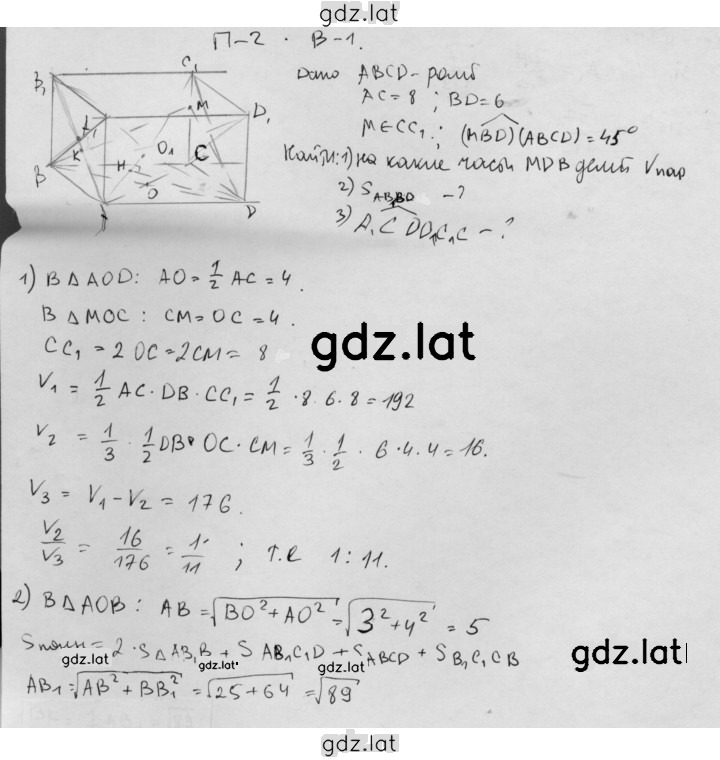 gdz.lat
П-2 · В-1.
Дано ABCD - ромб
AC = 8 ; BD = 6
M ∈ CC₁ ; (MBD)(ABCD) = 45°
Найти: 1) на какие части MDB делит Vпар
2) S -?
3) A₁C DD₁C₁C - ?
B₁ C₁ M D₁ A₁ K H O₁ C B O D
1) В △AOD: AO = 1/2 AC = 4.
В △MOC: CM = OC = 4.
CC₁ = 2OC = 2CM = 8
gdz.lat
V₁ = 1/2 AC · DB · CC₁ = 1/2 · 8 · 6 · 8 = 192
V₂ = 1/3 · 1/2 DB · OC · CM = 1/3 · 1/2 · 6 · 4 · 4 = 16.
V₃ = V₁ - V₂ = 176.
V₂/V₃ = 16/176 = 1/11 ; т.е 1 : 11.
2) В △AOB: AB = √BO² + AO² = √3² + 4² = 5
Sполн = 2 · S△AB₁B + SAB₁C₁D + SABCD + SB₁C₁CB
gdz.lat gdz.lat. gdz.lat gdz.lat
AB₁ = √AB² + BB₁² = √25 + 64 = √89
gdz.lat